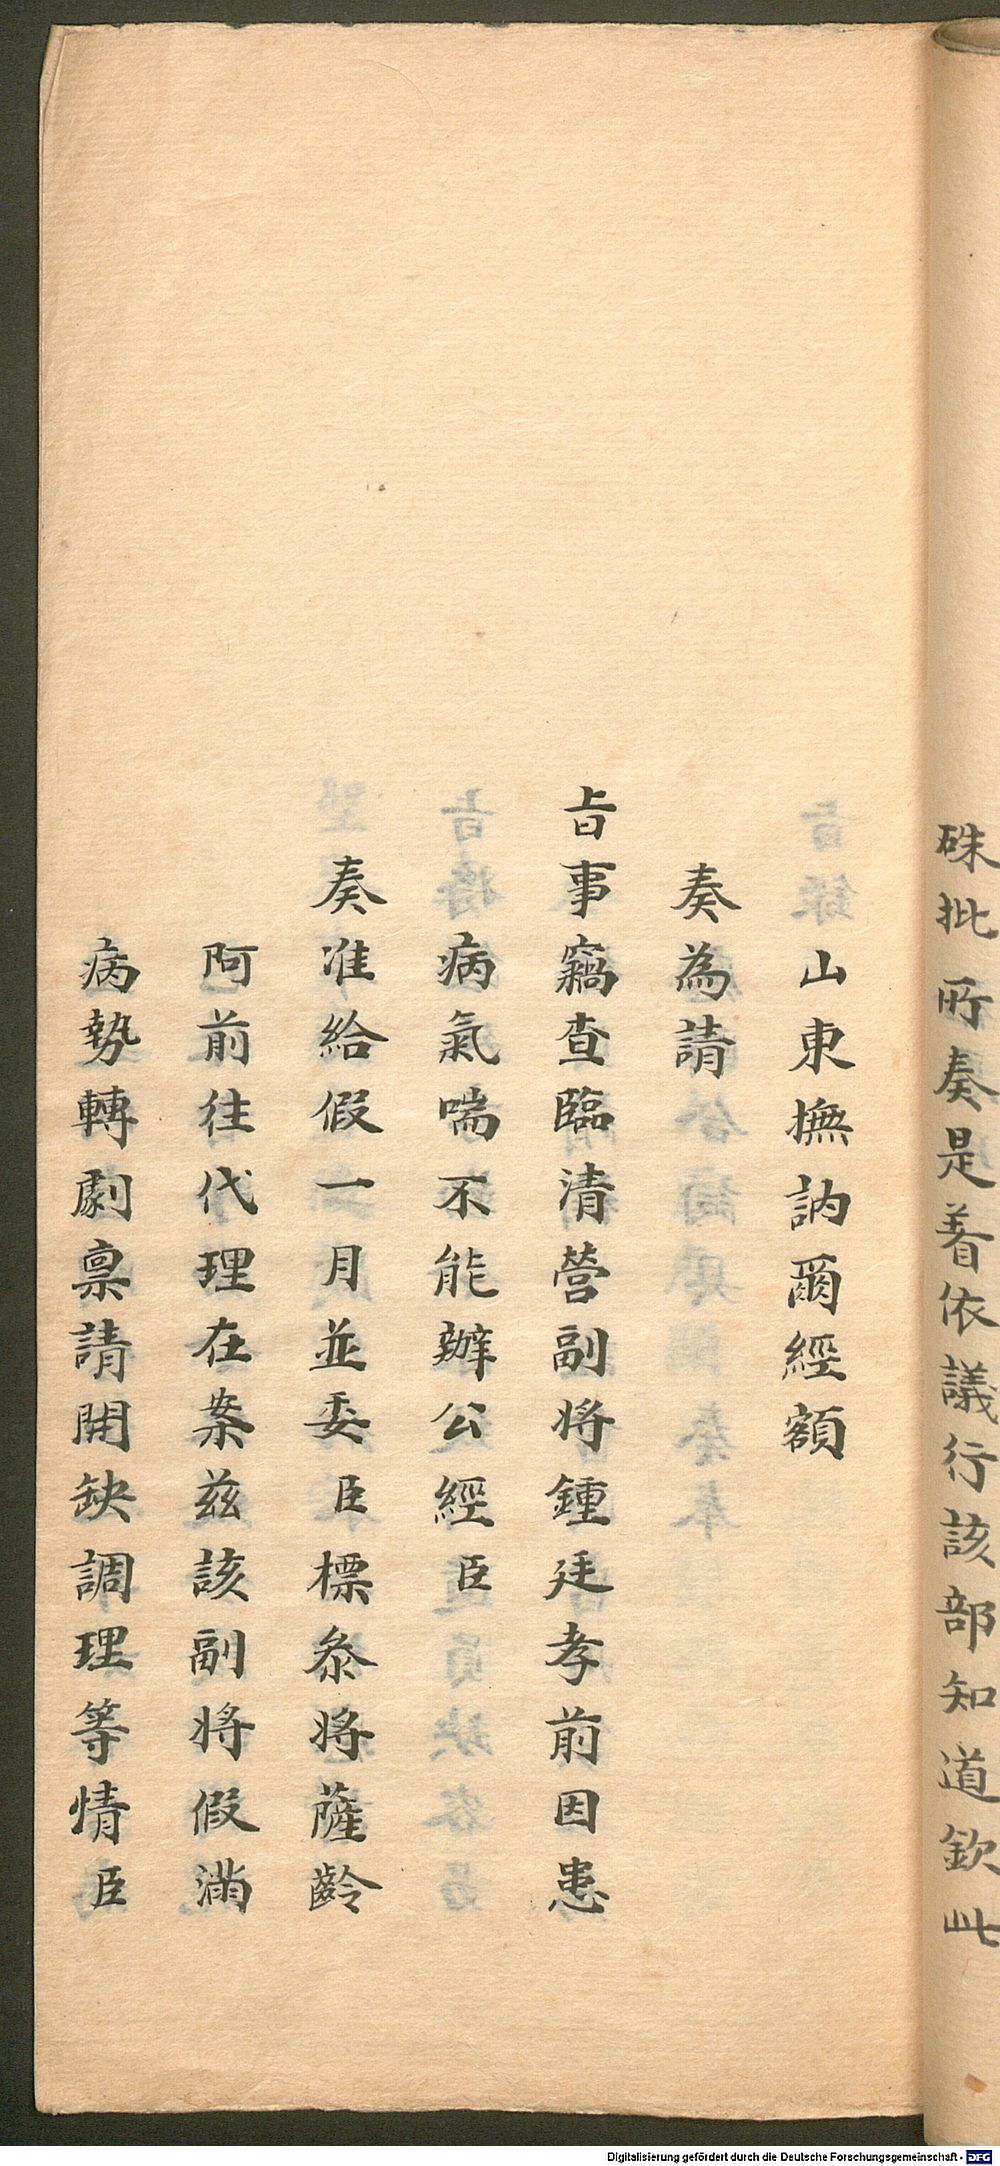 硃批所奏是着依議行該部知道欽此
山東撫訥爾經額
奏為請
旨事竊查臨清營副將鍾廷孝前因患
病氣喘不能辦公經臣
奏准給假一月並委臣標叅將薩齡
阿前往代理在案兹該副將假滿
病勢轉劇禀請開缺調理等情臣
Digitalisierung gefördert durch die Deutsche Forschungsgemeinschaft - DFG